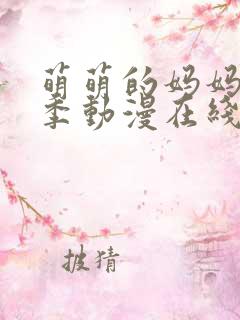 萌萌的妈妈
季動漫在线
披猜